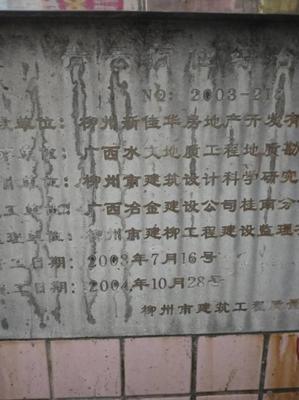 NO: 2003-21
设单位：柳州新佳华房地产开发有
单位：广西水文地质工程地质勘
单位：柳州市建筑设计科学研究
工单位：广西冶金建设公司桂南分
理单位：柳州市建柳工程建设监理
工日期：2003年7月16号
工日期：2004年10月28号
柳州市建筑工程质